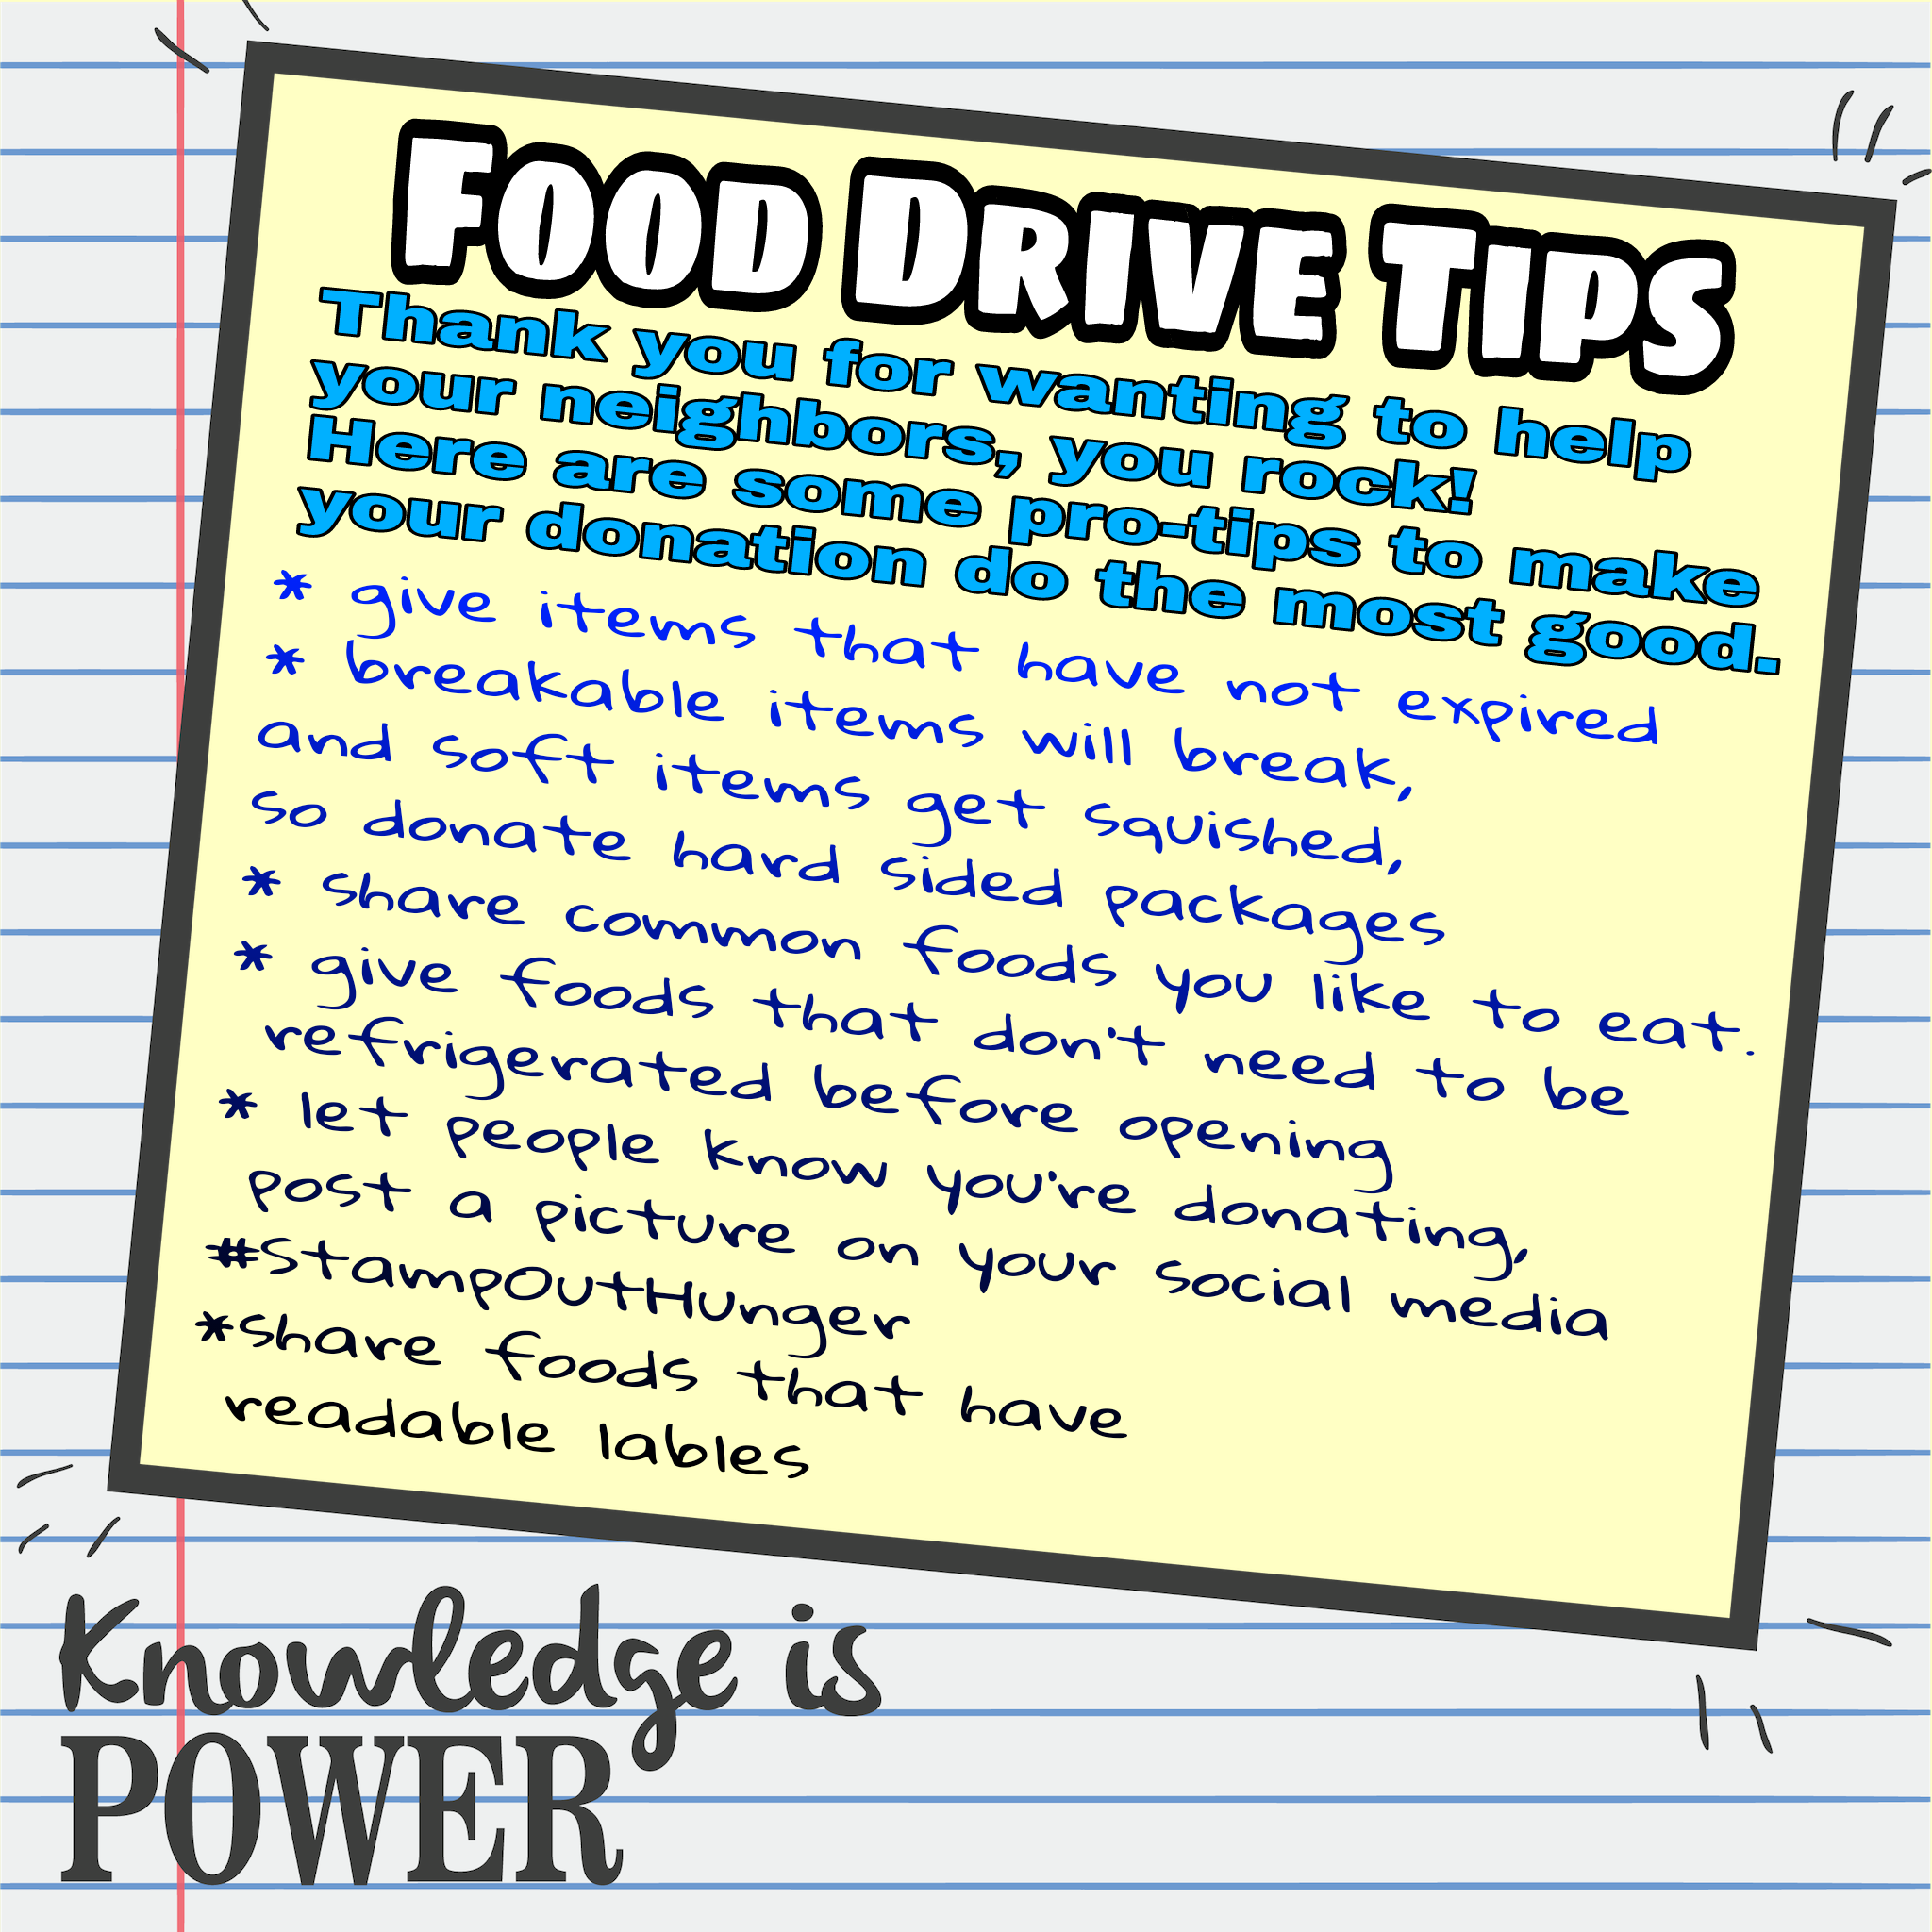 Food Drive Tips
Thank you for wanting to help
your neighbors, you rock!
Here are some pro-tips to make
your donation do the most good.
* give items that have not expired
* breakable items will break,
and soft items get squished,
so donate hard sided packages
* share common foods you like to eat.
* give foods that don't need to be
refrigerated before opening
* let people know you're donating,
post a picture on your social media
#StampOutHunger
*share foods that have
readable lables
Knowledge is
POWER